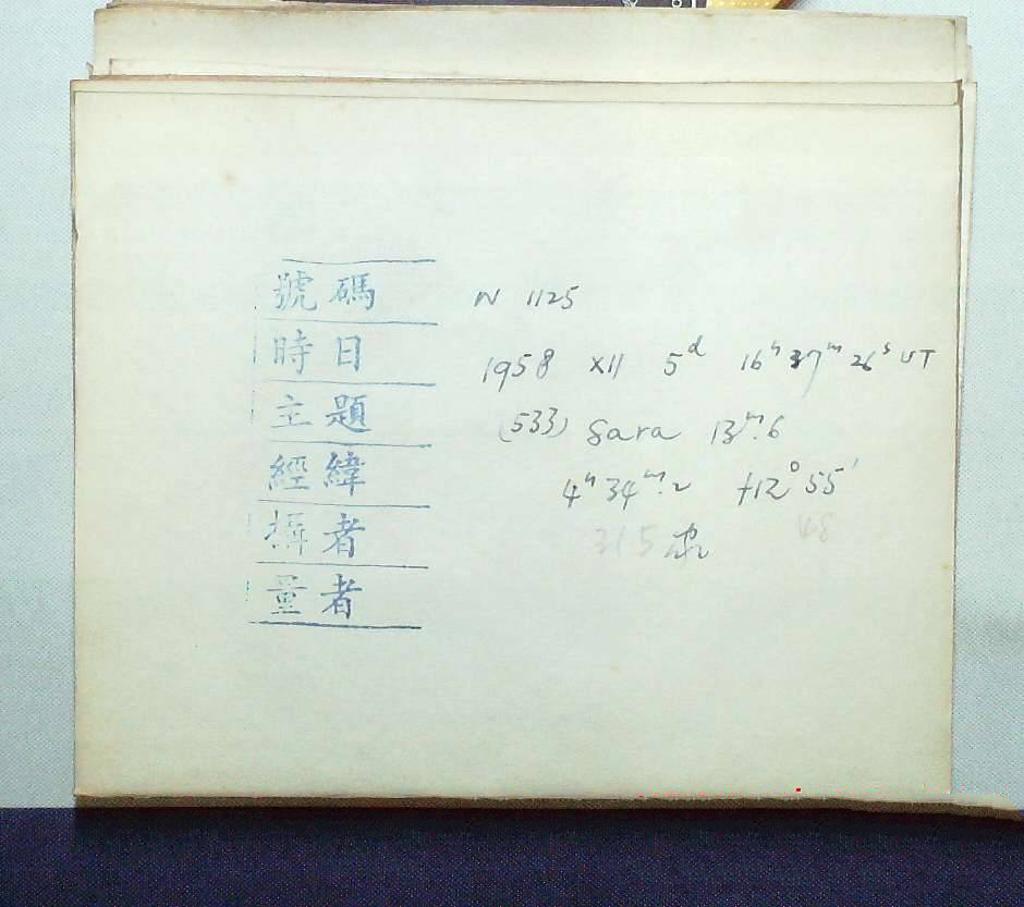 號碼 N 1125
時日 1958 XII 5ᵈ 16ʰ 37ᵐ 26ˢ UT
主題 (533) Sara 13ᵐ.6
經緯 4ʰ 34ᵐ.2 +12° 55'
攝者 315 48
量者